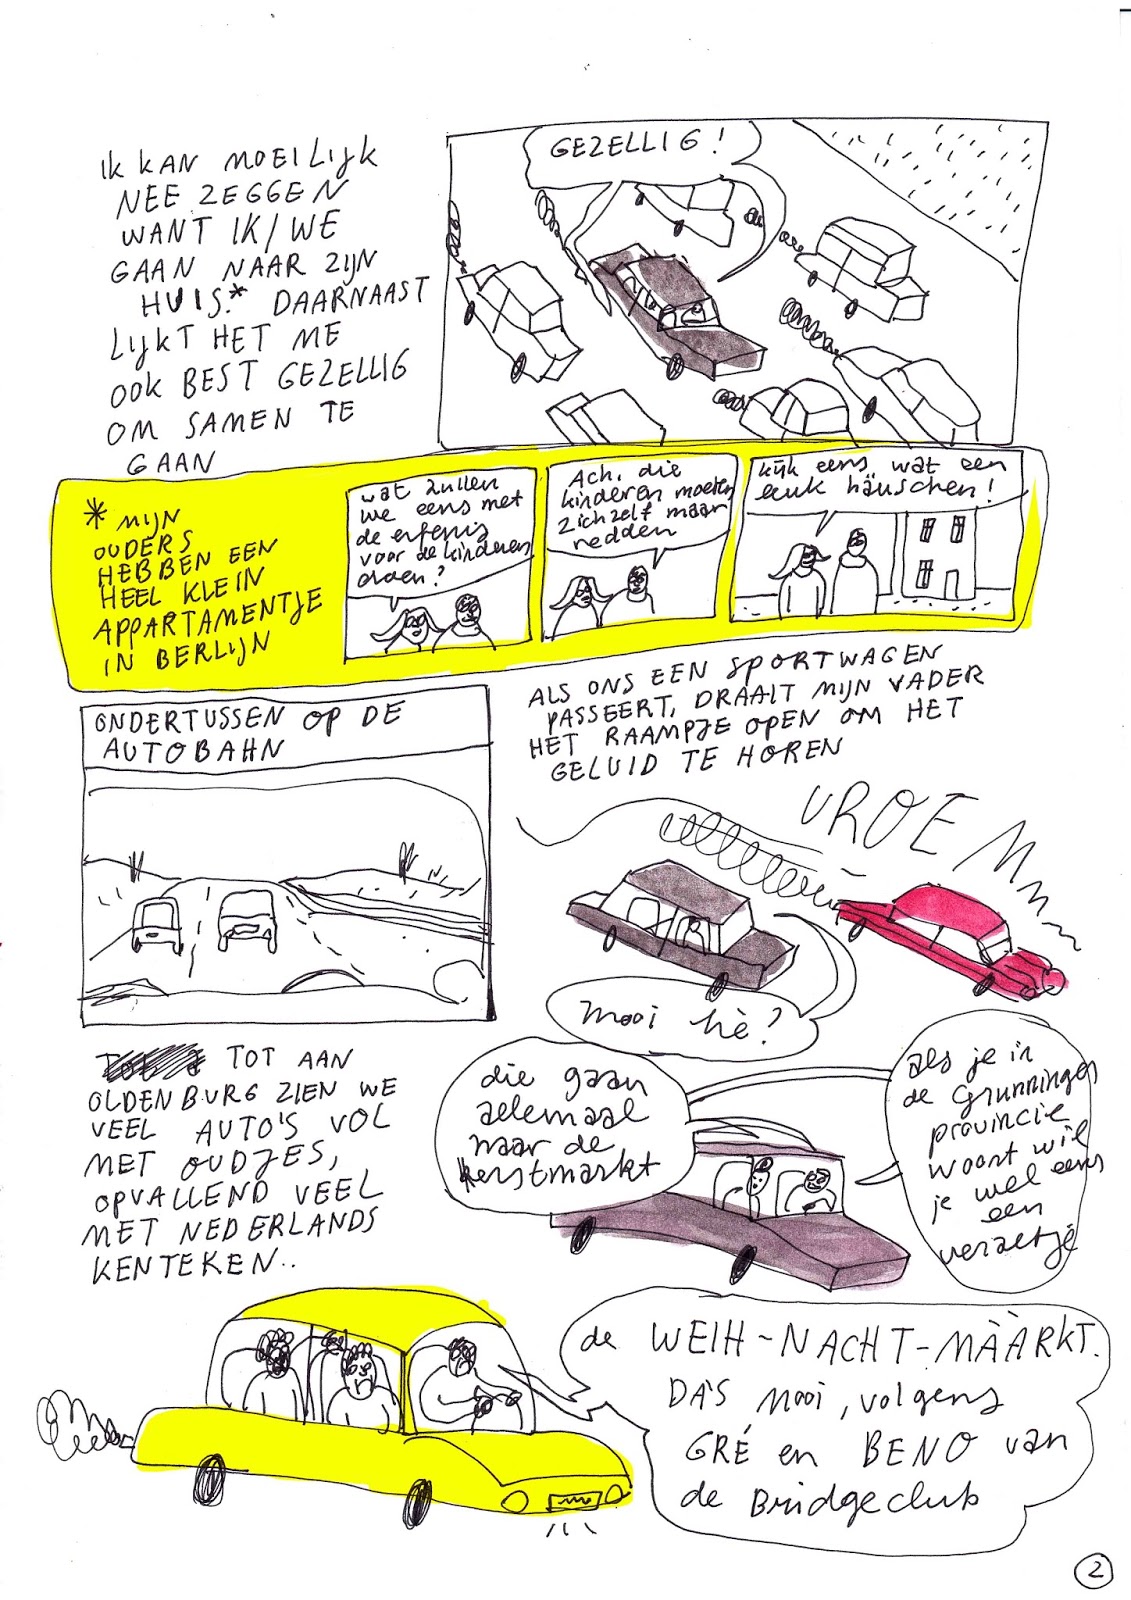 IK KAN MOEILIJK
NEE ZEGGEN
WANT IK/WE
GAAN NAAR ZIJN
HUIS.* DAARNAAST
LIJKT HET ME
OOK BEST GEZELLIG
OM SAMEN TE
GAAN
GEZELLIG!
* MIJN
OUDERS
HEBBEN EEN
HEEL KLEIN
APPARTAMENTJE
IN BERLIJN
wat zullen
we eens met
de erfenis
voor de kinderen
doen?
Ach, die
kinderen moeten
zichzelf maar
redden
kijk eens wat een
leuk häuschen!
ONDERTUSSEN OP DE
AUTOBAHN
ALS ONS EEN SPORTWAGEN
PASSEERT, DRAAIT MIJN VADER
HET RAAMPJE OPEN OM HET
GELUID TE HOREN
VROEM
mooi hè?
TOT AAN
OLDENBURG ZIEN WE
VEEL AUTO'S VOL
MET OUDJES,
OPVALLEND VEEL
MET NEDERLANDS
KENTEKEN..
die gaan
allemaal
naar de
kerstmarkt
als je in
de Grunninger
provincie
woont wil
je wel eens
een
verzetje
de WEIH-NACHT-MÄÄRKT.
DA'S mooi, volgens
GRÉ en BENO van
de Bridgeclub
2